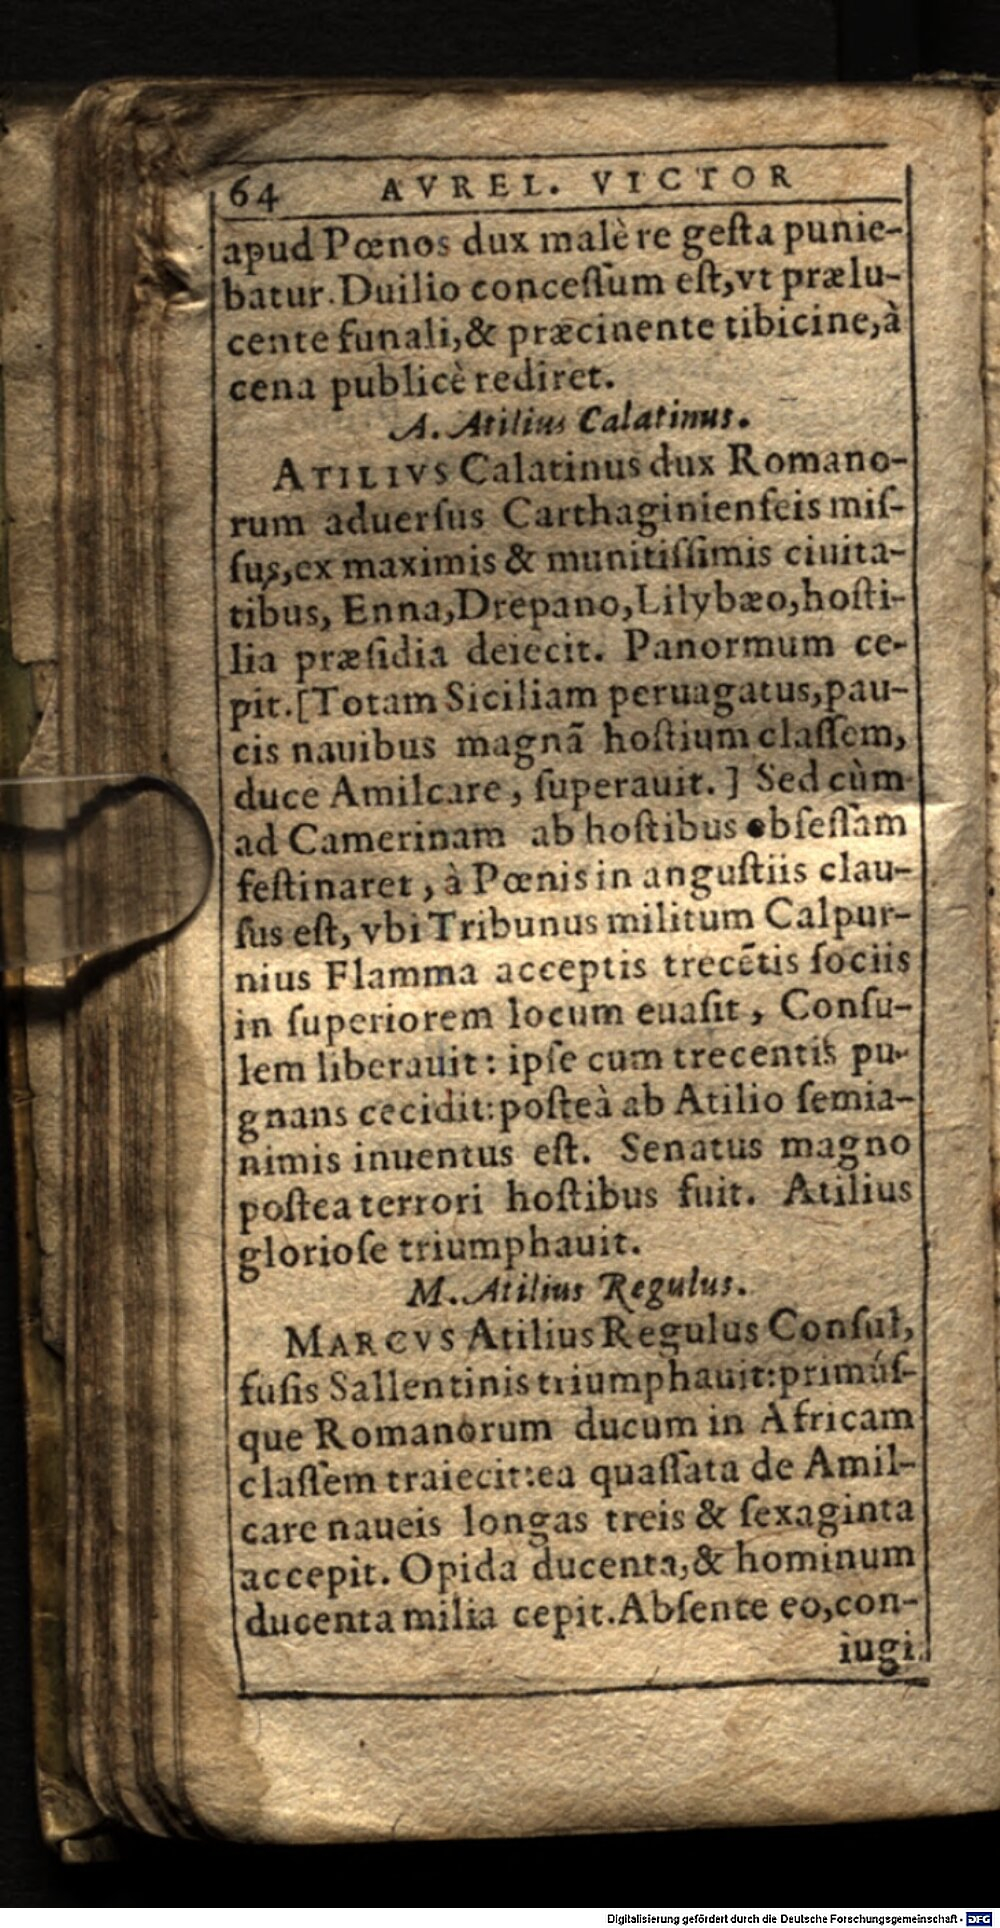 64 AVREL. VICTOR
apud Pœnos dux malè re geſta punie-
batur. Duilio conceſſum eſt, vt prælu-
cente funali, & præcinente tibicine, à
cena publicè rediret.
A. Atilius Calatinus.
ATILIVS Calatinus dux Romano-
rum aduerſus Carthaginienſeis miſ-
ſus, ex maximis & munitiſſimis ciuita-
tibus, Enna, Drepano, Lilybæo, hoſti-
lia præſidia deiecit. Panormum ce-
pit. [Totam Siciliam peruagatus, pau-
cis nauibus magnã hoſtium claſſem,
duce Amilcare, ſuperauit. ] Sed cùm
ad Camerinam ab hoſtibus obſeſſam
feſtinaret, à Pœnis in anguſtiis clau-
ſus eſt, vbi Tribunus militum Calpur-
nius Flamma acceptis trecẽtis ſociis
in ſuperiorem locum euaſit, Conſu-
lem liberauit: ipſe cum trecentis pu-
gnans cecidit: poſteà ab Atilio ſemia-
nimis inuentus eſt. Senatus magno
poſtea terrori hoſtibus fuit. Atilius
glorioſe triumphauit.
M. Atilius Regulus.
MARCVS Atilius Regulus Conſul,
fuſis Sallentinis triumphauit: primúſ-
que Romanorum ducum in Africam
claſſem traiecit: ea quaſſata de Amil-
care naueis longas treis & ſexaginta
accepit. Opida ducenta, & hominum
ducenta milia cepit. Abſente eo, con-
iugi
Digitalisierung gefördert durch die Deutsche Forschungsgemeinschaft - DFG